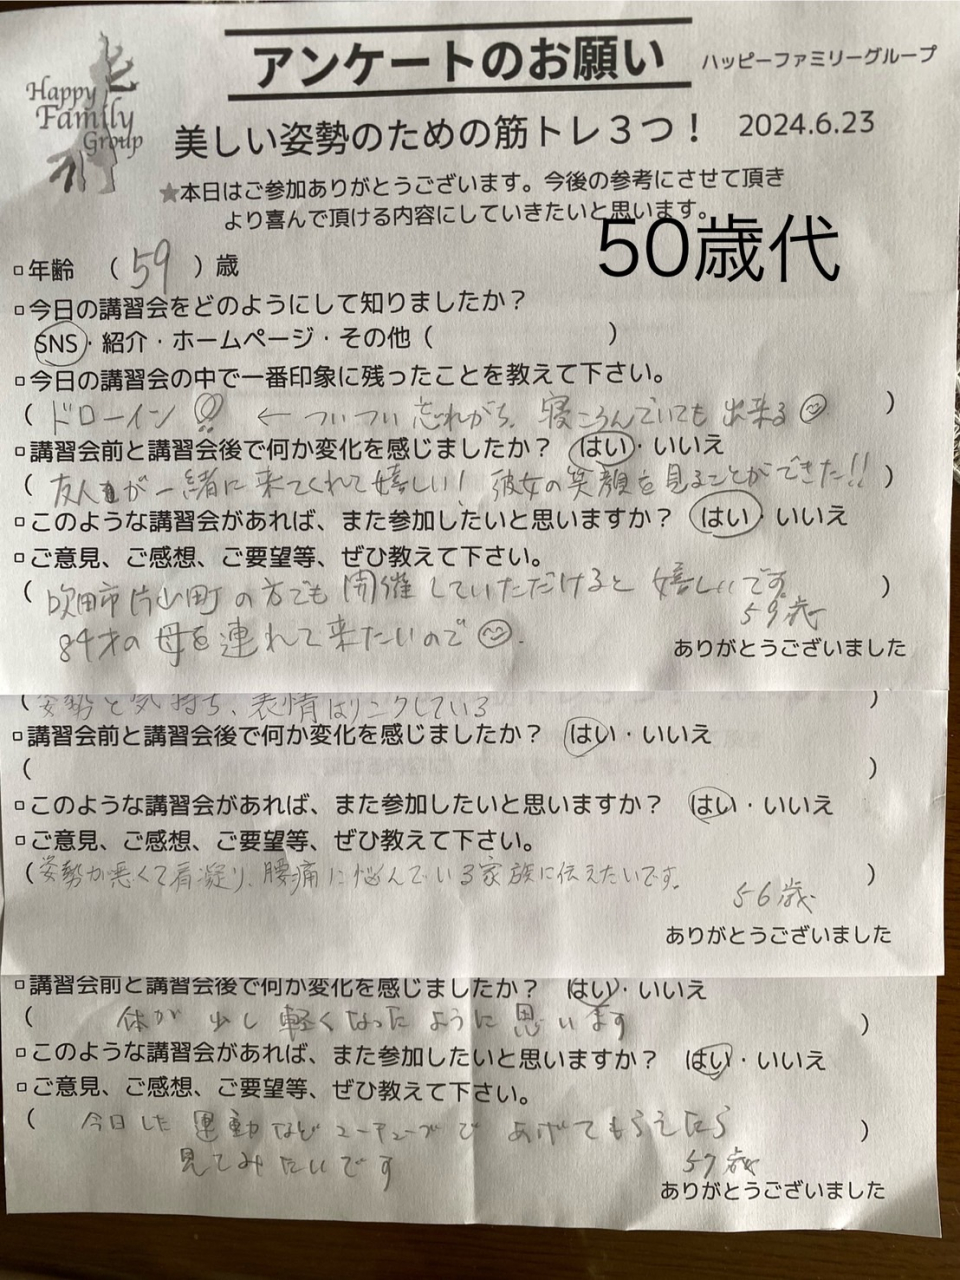 Happy
Family
Group
アンケートのお願い
ハッピーファミリーグループ
美しい姿勢のための筋トレ３つ！ 2024.6.23
★本日はご参加ありがとうございます。今後の参考にさせて頂き
より喜んで頂ける内容にしていきたいと思います。
50歳代
▫年齢 （59）歳
▫今日の講習会をどのようにして知りましたか？
SNS・紹介・ホームページ・その他（ ）
▫今日の講習会の中で一番印象に残ったことを教えて下さい。
（ドローイン!! ← ついつい忘れがち。寝ころんでいても出来る☺ ）
▫講習会前と講習会後で何か変化を感じましたか？ はい・いいえ
（友人が一緒に来てくれて嬉しい! 彼女の笑顔を見ることができた!!）
▫このような講習会があれば、また参加したいと思いますか？ はい・いいえ
▫ご意見、ご感想、ご要望等、ぜひ教えて下さい。
（吹田市片山町の方でも開催していただけると嬉しいです。 ）
59歳
84才の母を連れて来たいので☺.
ありがとうございました
（姿勢と気持ち、表情はリンクしている ）
▫講習会前と講習会後で何か変化を感じましたか？ はい・いいえ
（ ）
▫このような講習会があれば、また参加したいと思いますか？ はい・いいえ
▫ご意見、ご感想、ご要望等、ぜひ教えて下さい。
（姿勢が悪くて肩凝り、腰痛に悩んでいる家族に伝えたいです。 ）
56歳
ありがとうございました
▫講習会前と講習会後で何か変化を感じましたか？ はい・いいえ
（ 体が少し軽くなったように思います ）
▫このような講習会があれば、また参加したいと思いますか？ はい・いいえ
▫ご意見、ご感想、ご要望等、ぜひ教えて下さい。
（ 今日した運動などユーチューブであげてもらえたら ）
見てみたいです
57歳
ありがとうございました